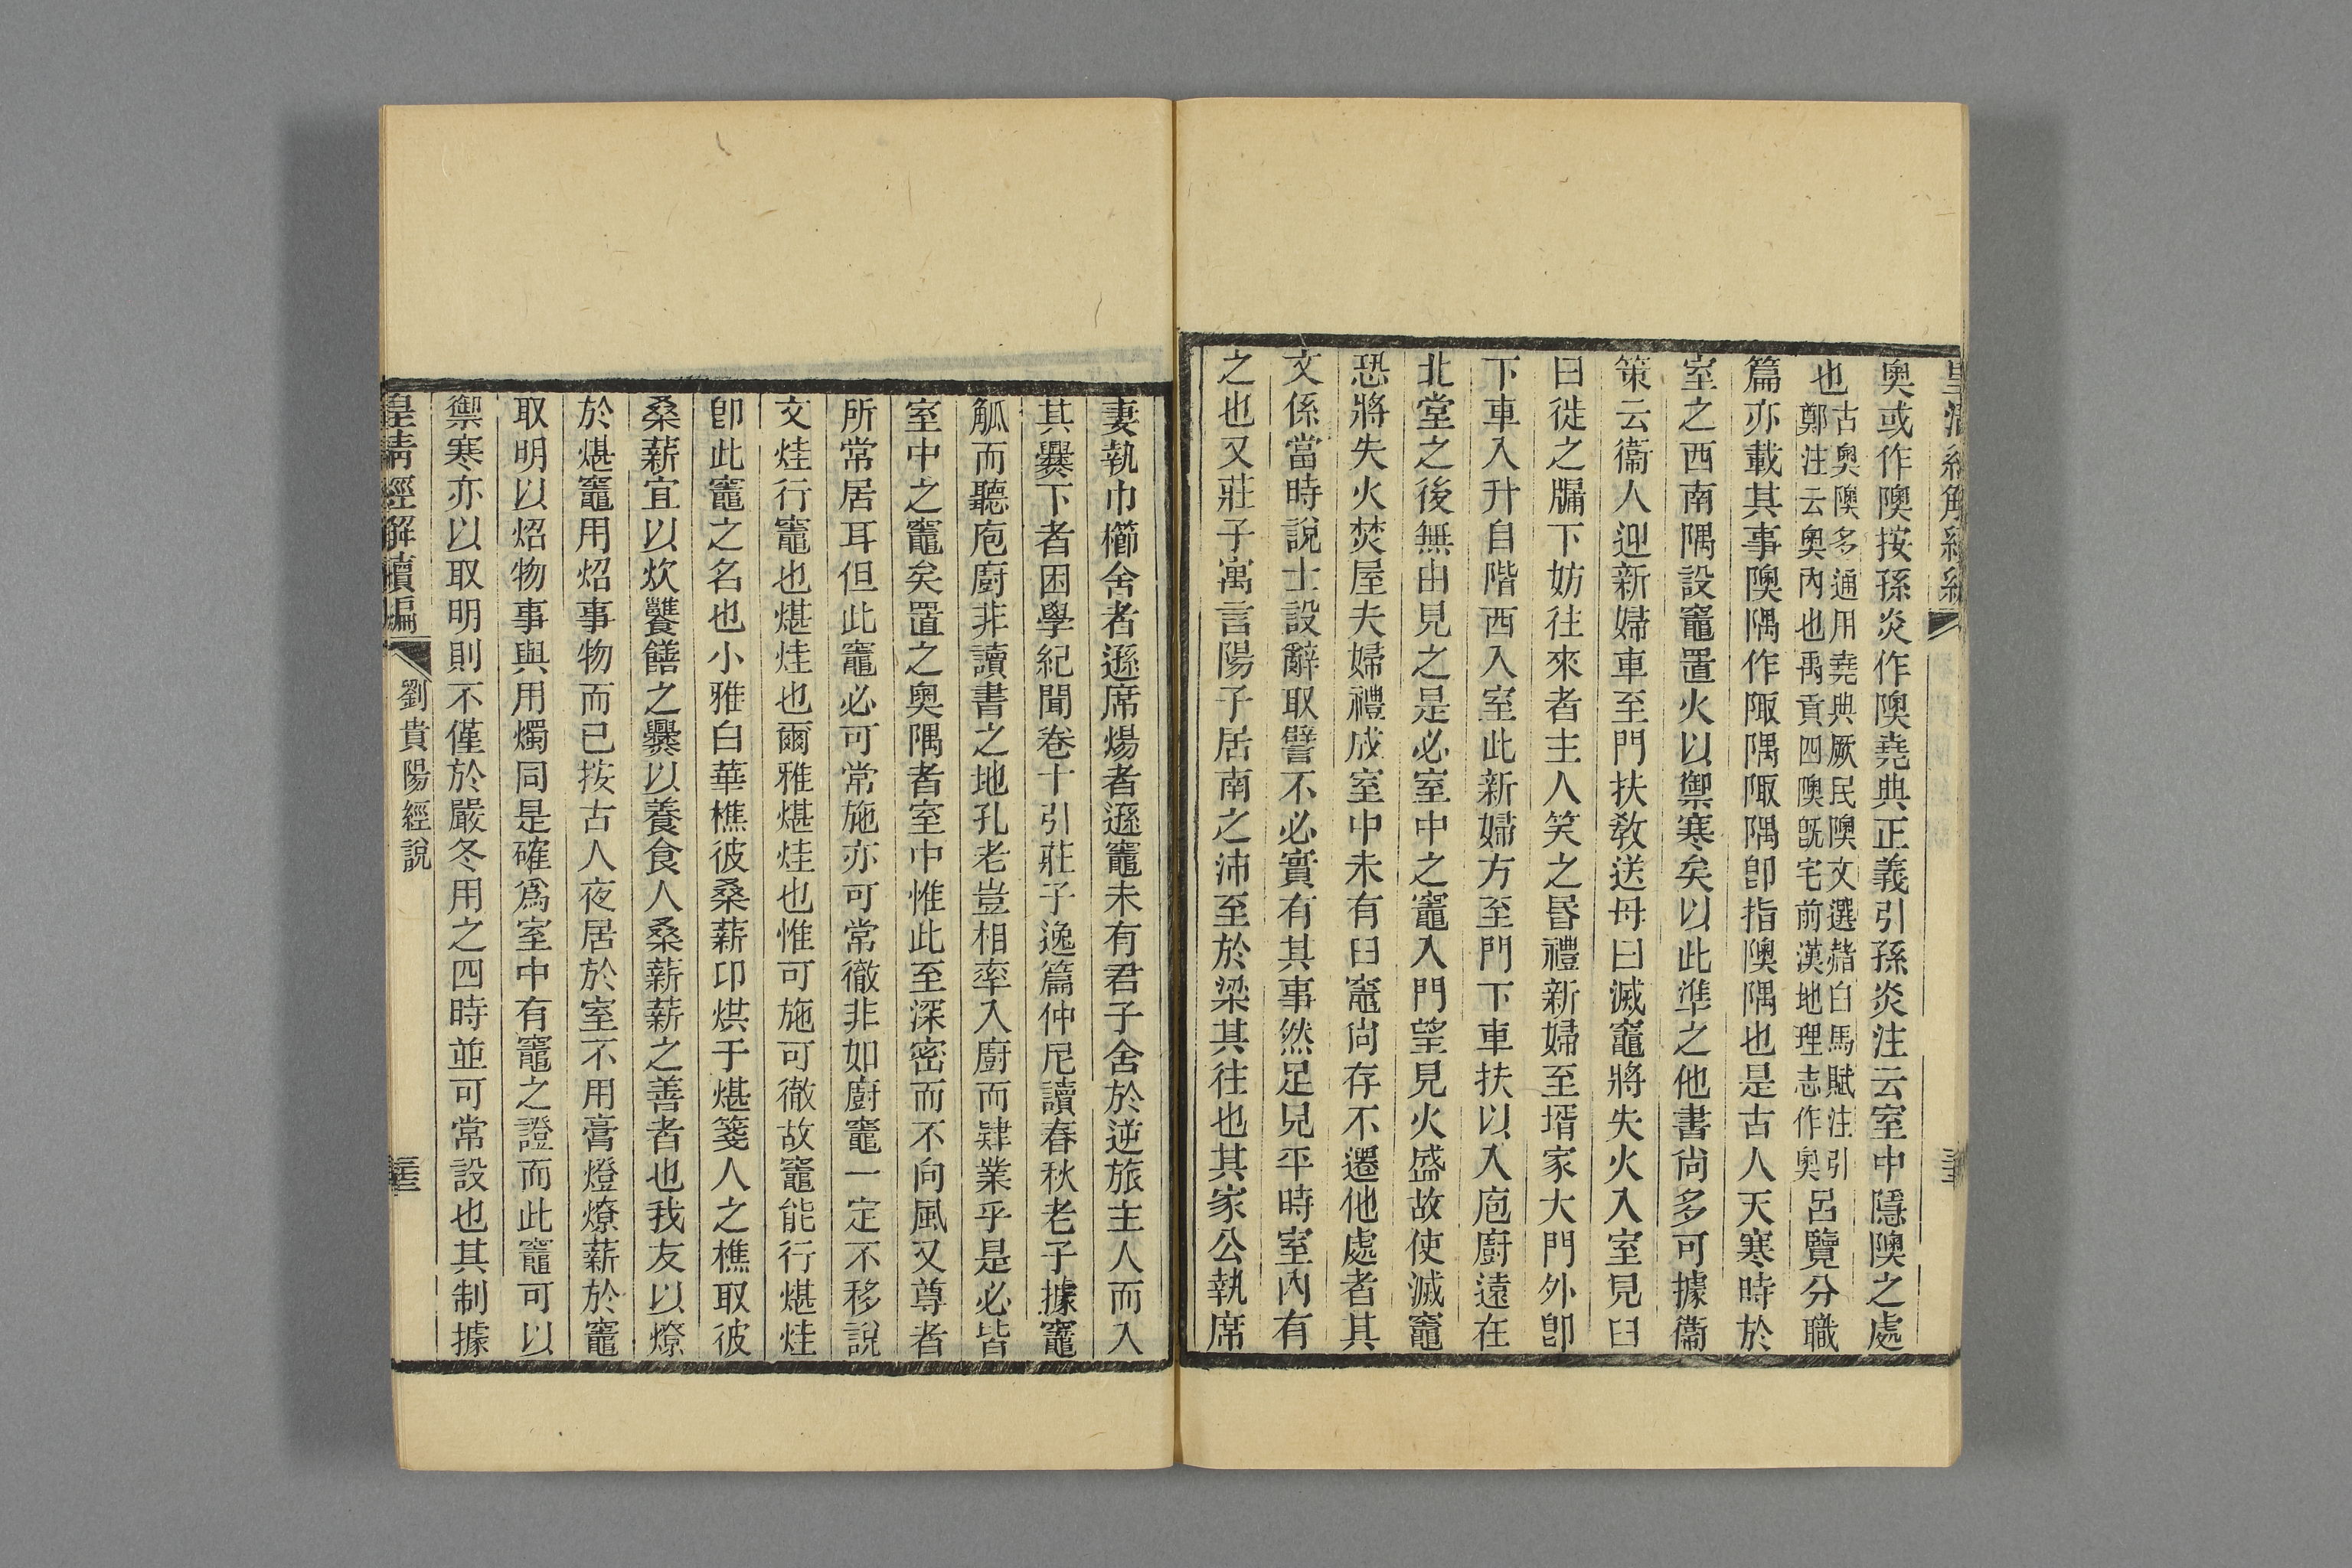 奧或作隩按孫炎作隩堯典正義引孫炎注云室中隱隩之處
也古奧隩多通用堯典厥民隩文選赭白馬賦注引鄭注云奧內也禹貢四隩旣宅前漢地理志作奧呂覽分職
篇亦載其事隩隅作陬隅陬隅卽指隩隅也是古人天寒時於
室之西南隅設竈置火以禦寒矣以此準之他書尙多可據衞
策云衞人迎新婦車至門扶敎送母曰滅竈將失火入室見臼
曰徙之牖下妨往來者主人笑之昏禮新婦至壻家大門外卽
下車入升自階西入室此新婦方至門下車扶以入庖廚遠在
北堂之後無由見之是必室中之竈入門望見火盛故使滅竈
恐將失火焚屋夫婦禮成室中未有曰竈尙存不遷他處者其
文係當時說士設辭取譬不必實有其事然足見平時室內有
之也又莊子寓言陽子居南之沛至於梁其往也其家公執席
妻執巾櫛舍者遜席煬者遜竈未有君子舍於逆旅主人而入
其爨下者困學紀聞卷十引莊子逸篇仲尼讀春秋老子據竈
觚而聽庖廚非讀書之地孔老豈相率入廚而肄業乎是必皆
室中之竈矣置之奧隅者室中惟此至深密而不向風又尊者
所常居耳但此竈必可常施亦可常徹非如廚竈一定不移說
文烓行竈也煁烓也爾雅煁烓也惟可施可徹故竈能行煁烓
卽此竈之名也小雅白華樵彼桑薪卬烘于煁箋人之樵取彼
桑薪宜以炊饔饍之爨以養食人桑薪薪之善者也我友以燎
於煁竈用炤事物而已按古人夜居於室不用膏燈燎薪於竈
取明以炤物事與用燭同是確爲室中有竈之證而此竈可以
禦寒亦以取明則不僅於嚴冬用之四時並可常設也其制據
皇淸經解續編 劉貴陽經說